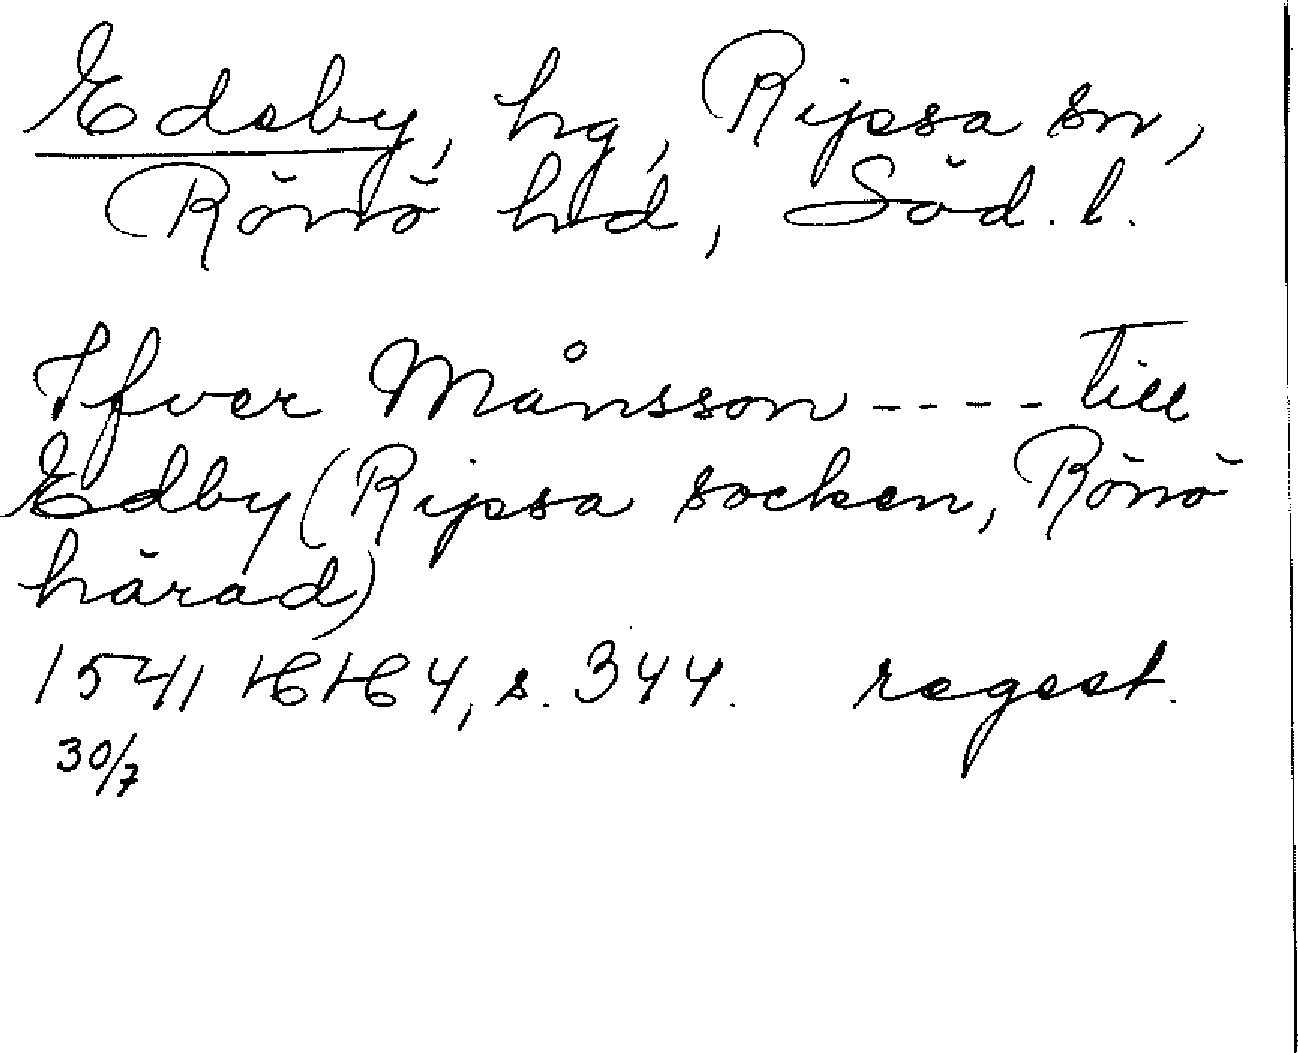 Edsby, hg, Ripsa sn,
Rönö hd, Söd. l.
Ifver Månsson ---- till
Edby (Ripsa socken, Rönö
härad)
1541 HH 4, s. 344. regest.
30/7